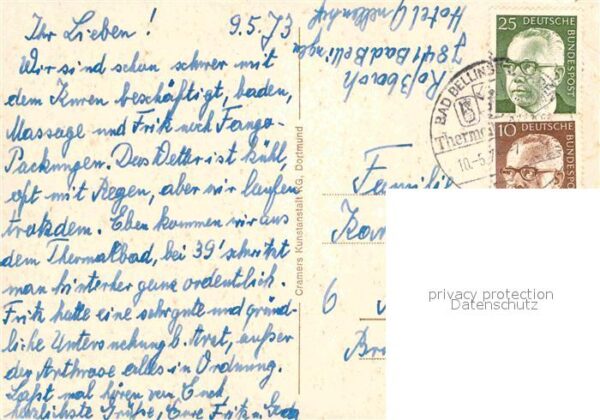 Ihr Lieben! 9.5.73
Wir sind schon schwer mit
dem Kuren beschäftigt, baden,
Massage und Fritz noch Fango-
Packungen. Das Wetter ist kühl,
oft mit Regen, aber wir laufen
trotzdem. Eben kommen wir aus
dem Thermalbad, bei 39° schwitzt
man hinterher ganz ordentlich.
Fritz hatte eine sehr gute und gründ-
liche Untersuchung b. Arzt, außer
der Arthrose alles in Ordnung.
Laßt mal hören von Euch
herzlichste Grüße, Eure Fritz u.
Roßbach
7841 Bad Bellingen
Hotel Quellenhof
Cramers Kunstanstalt KG, Dortmund
25 DEUTSCHE
BUNDESPOST
10 DEUTSCHE
BUNDESPOST
BAD BELLINGEN
10.-5.
6
privacy protection
Datenschutz